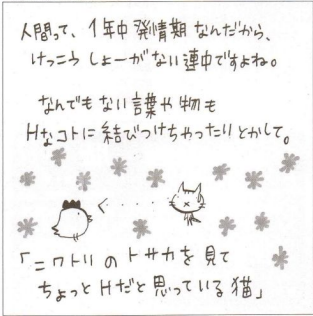 人間って、1年中発情期なんだから、
けっこうしょーがない連中ですよね。
なんでもない言葉や物も
Hなコトに結びつけちゃったりとかして。
「ニワトリのトサカを見て
ちょっとHだと思っている猫」